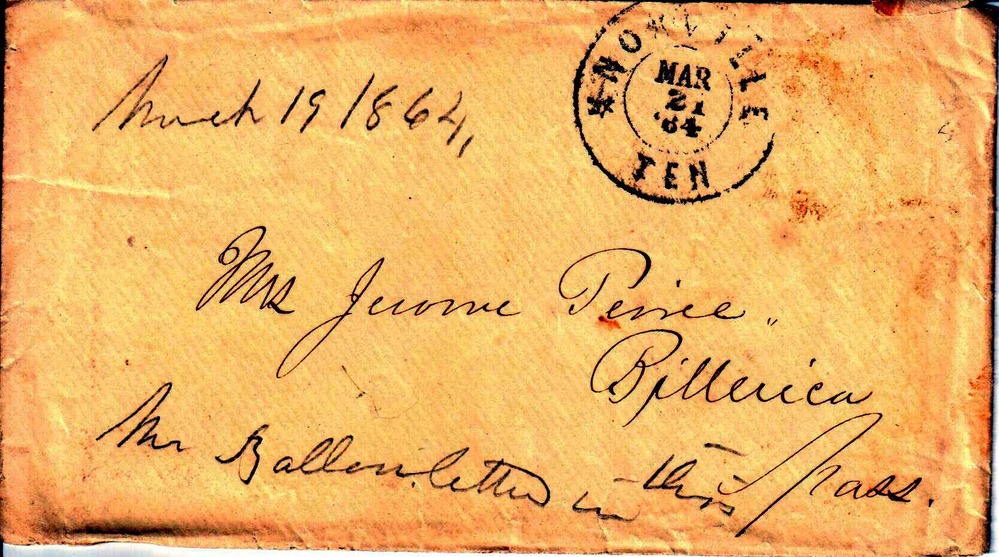 KNOXVILLE
MAR
21
'64
TEN
March 19 1864,
Mrs Jerome Peirce.
Billerica
Mass.
Mr Ballou letter in this